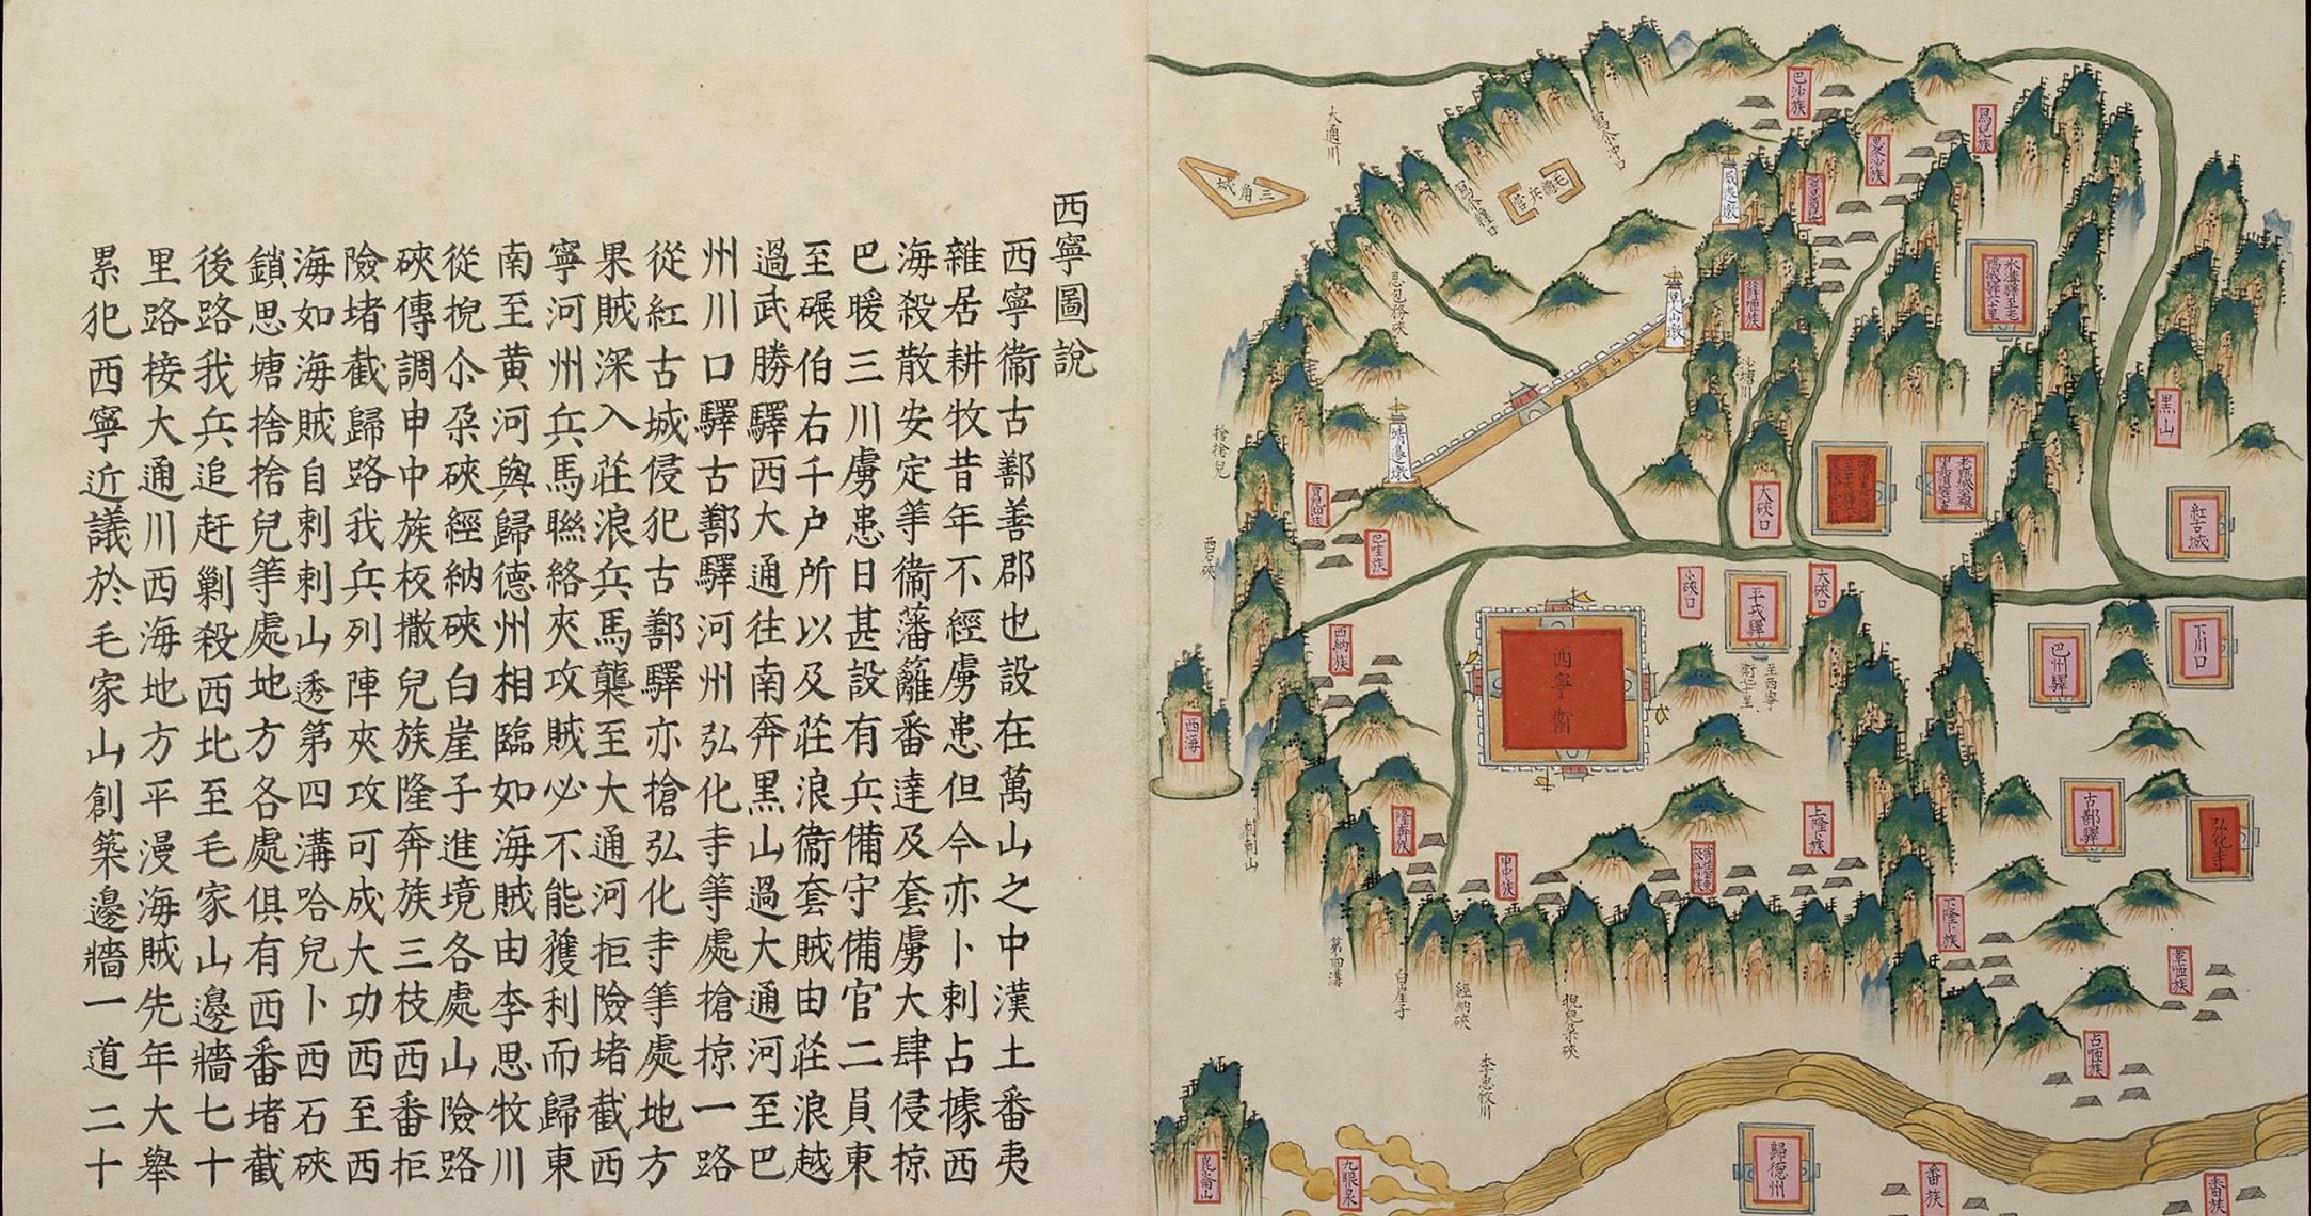 西寧圖說
西寧衞古鄯善郡也設在萬山之中漢土番夷
雜居耕牧昔年不經虜患但今亦卜剌占據西
海殺散安定等衞藩籬番達及套虜大肆侵掠
巴暖三川虜患日甚設有兵備守備官二員東
至碾伯右千户所以及莊浪衞套賊由莊浪越
過武勝驛西大通徃南奔黑山過大通河至巴
州川口驛古鄯驛河州弘化寺等處搶掠一路
從紅古城侵犯古鄯驛亦搶弘化寺等處地方
果賊深入莊浪兵馬襲至大通河拒險堵截西
寧河州兵馬聯絡夾攻賊必不能獲利而歸東
南至黄河與歸德州相臨如海賊由李思牧川
從掜尒朶硤經納硤白崖子進境各處山險路
硤傳調申中族板撒兒族隆奔族三枝西番拒
險堵截歸路我兵列陣夾攻可成大功西至西
海如海賊自剌剌山透第四溝哈兒卜西石硤
鎖思塘捨捨兒等處地方各處俱有西番堵截
後路我兵追赶剿殺西北至毛家山邊牆七十
里路接大通川西海地方平漫海賊先年大舉
累犯西寧近議於毛家山創築邊牆一道二十
大通川
三角城
毛總兵營
巴沙族
靖邊墩
沙塘川
捨捨兒
西石硤
巴哇族
大硤口
小硤口
大硤口
平戎驛
至西寧
黒山
紅古城
下川口
巴州驛
古鄯驛
弘化寺
西寧衞
西納族
西海
隆奔族
申中族
上隆卜族
下隆卜族
占咂族
第四溝
白崖子
經納硤
掜兒朶硤
崑崙山
九眼泉
歸德州
番族
番族